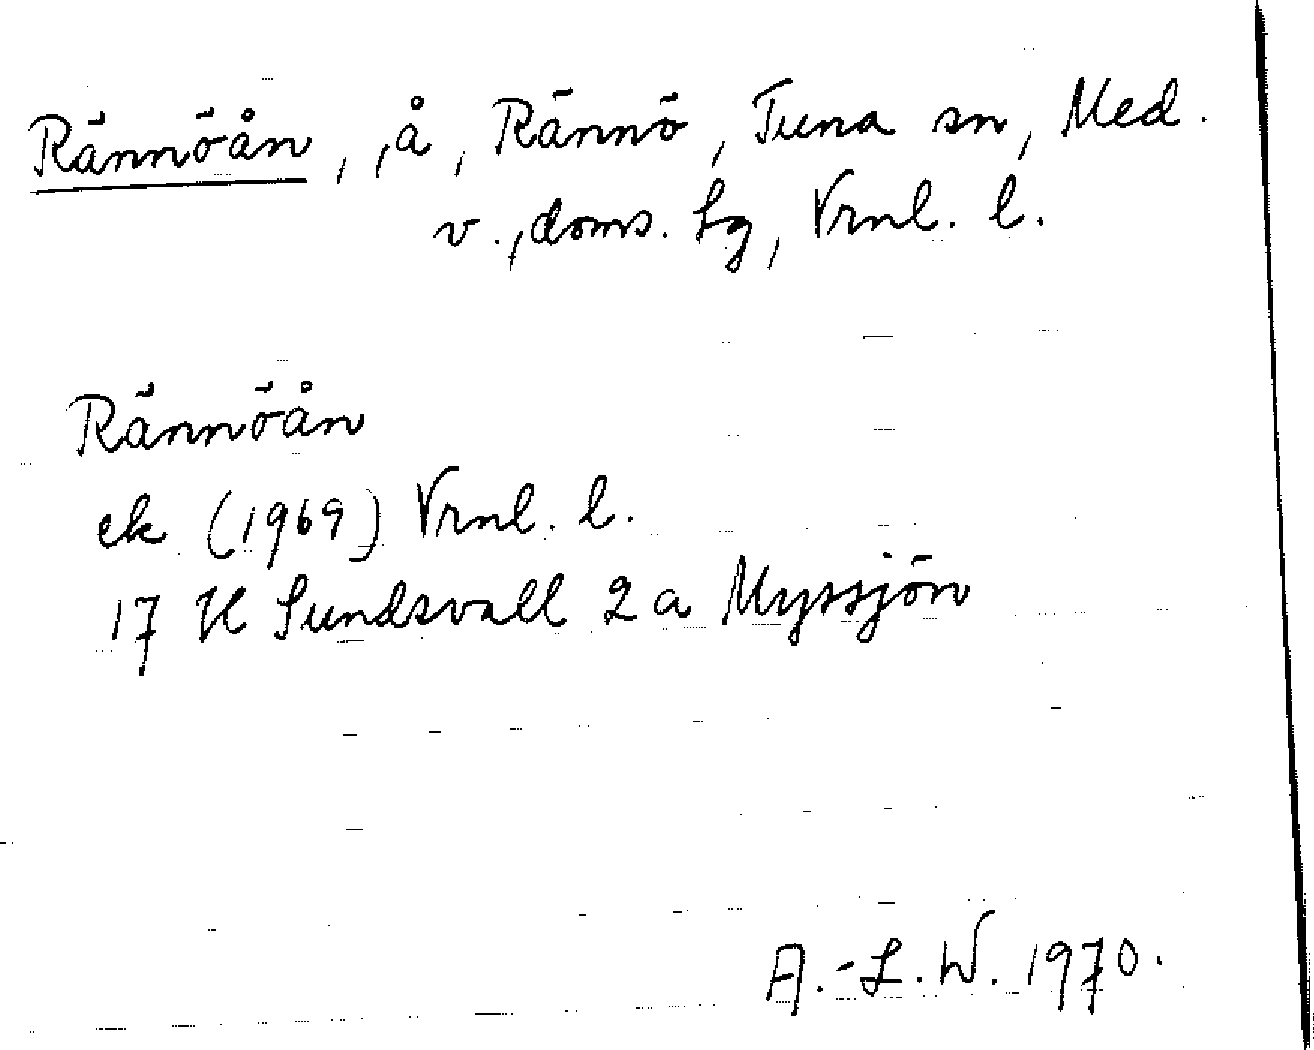 Rännöån, ,å, Rännö, Tuna sn, Med.
v.,doms. hg, Vrnl. l.
Rännöån
ek (1969) Vrnl. l.
17 H Sundsvall 2 a Myssjön
A.-L.W. 1970.